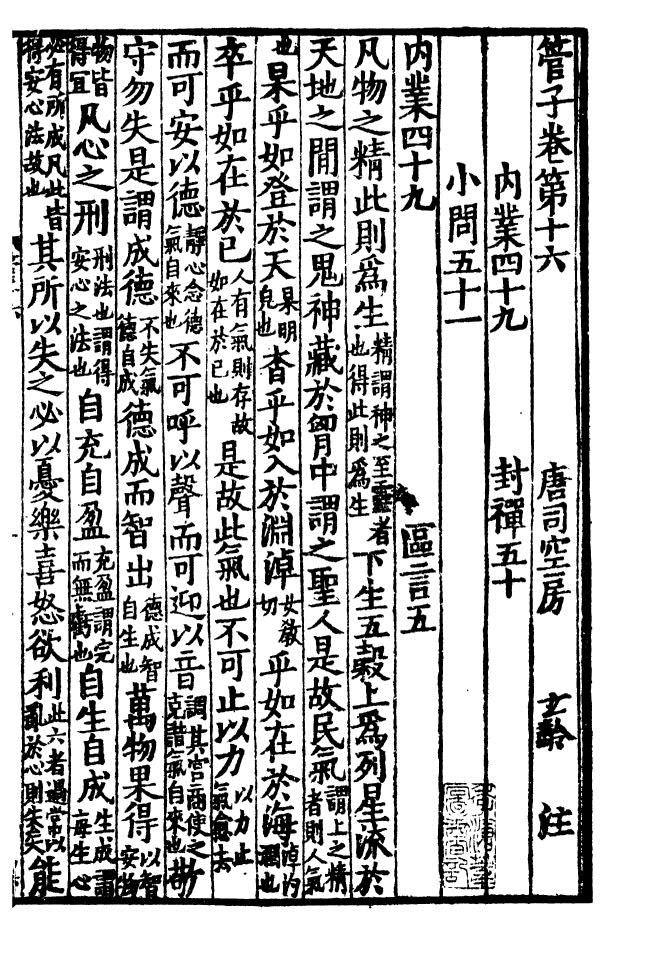 管子卷第十六　唐司空房　玄齡　注
內業四十九　封禪五十
小問五十一
內業四十九　區言五
凡物之精此則為生精謂神之至靈者也得此則為生下生五穀上為列星流於
天地之間謂之鬼神藏於胷中謂之聖人是故民氣謂上之精者則人氣
也杲乎如登於天杲明皃也杳乎如入於淵淖女敎切乎如在於海淖灼潤也
卒乎如在於己人有氣則存故如在於己也是故此氣也不可止以力以力止氣愈去
而可安以德靜心念德氣自來也不可呼以聲而可迎以音調其宮商使之克諧氣自來也故
守勿失是謂成德不失氣德自成德成而智出德成智自生也萬物果得以智安物
物皆得宜凡心之刑刑法也謂得安心之法也自充自盈充盈謂完而無虧也自生自成生成謂每生心
必有所成凡此皆得安心法故也皆其所以失之必以憂樂喜怒欲利此六者過常以亂於心則失矣能